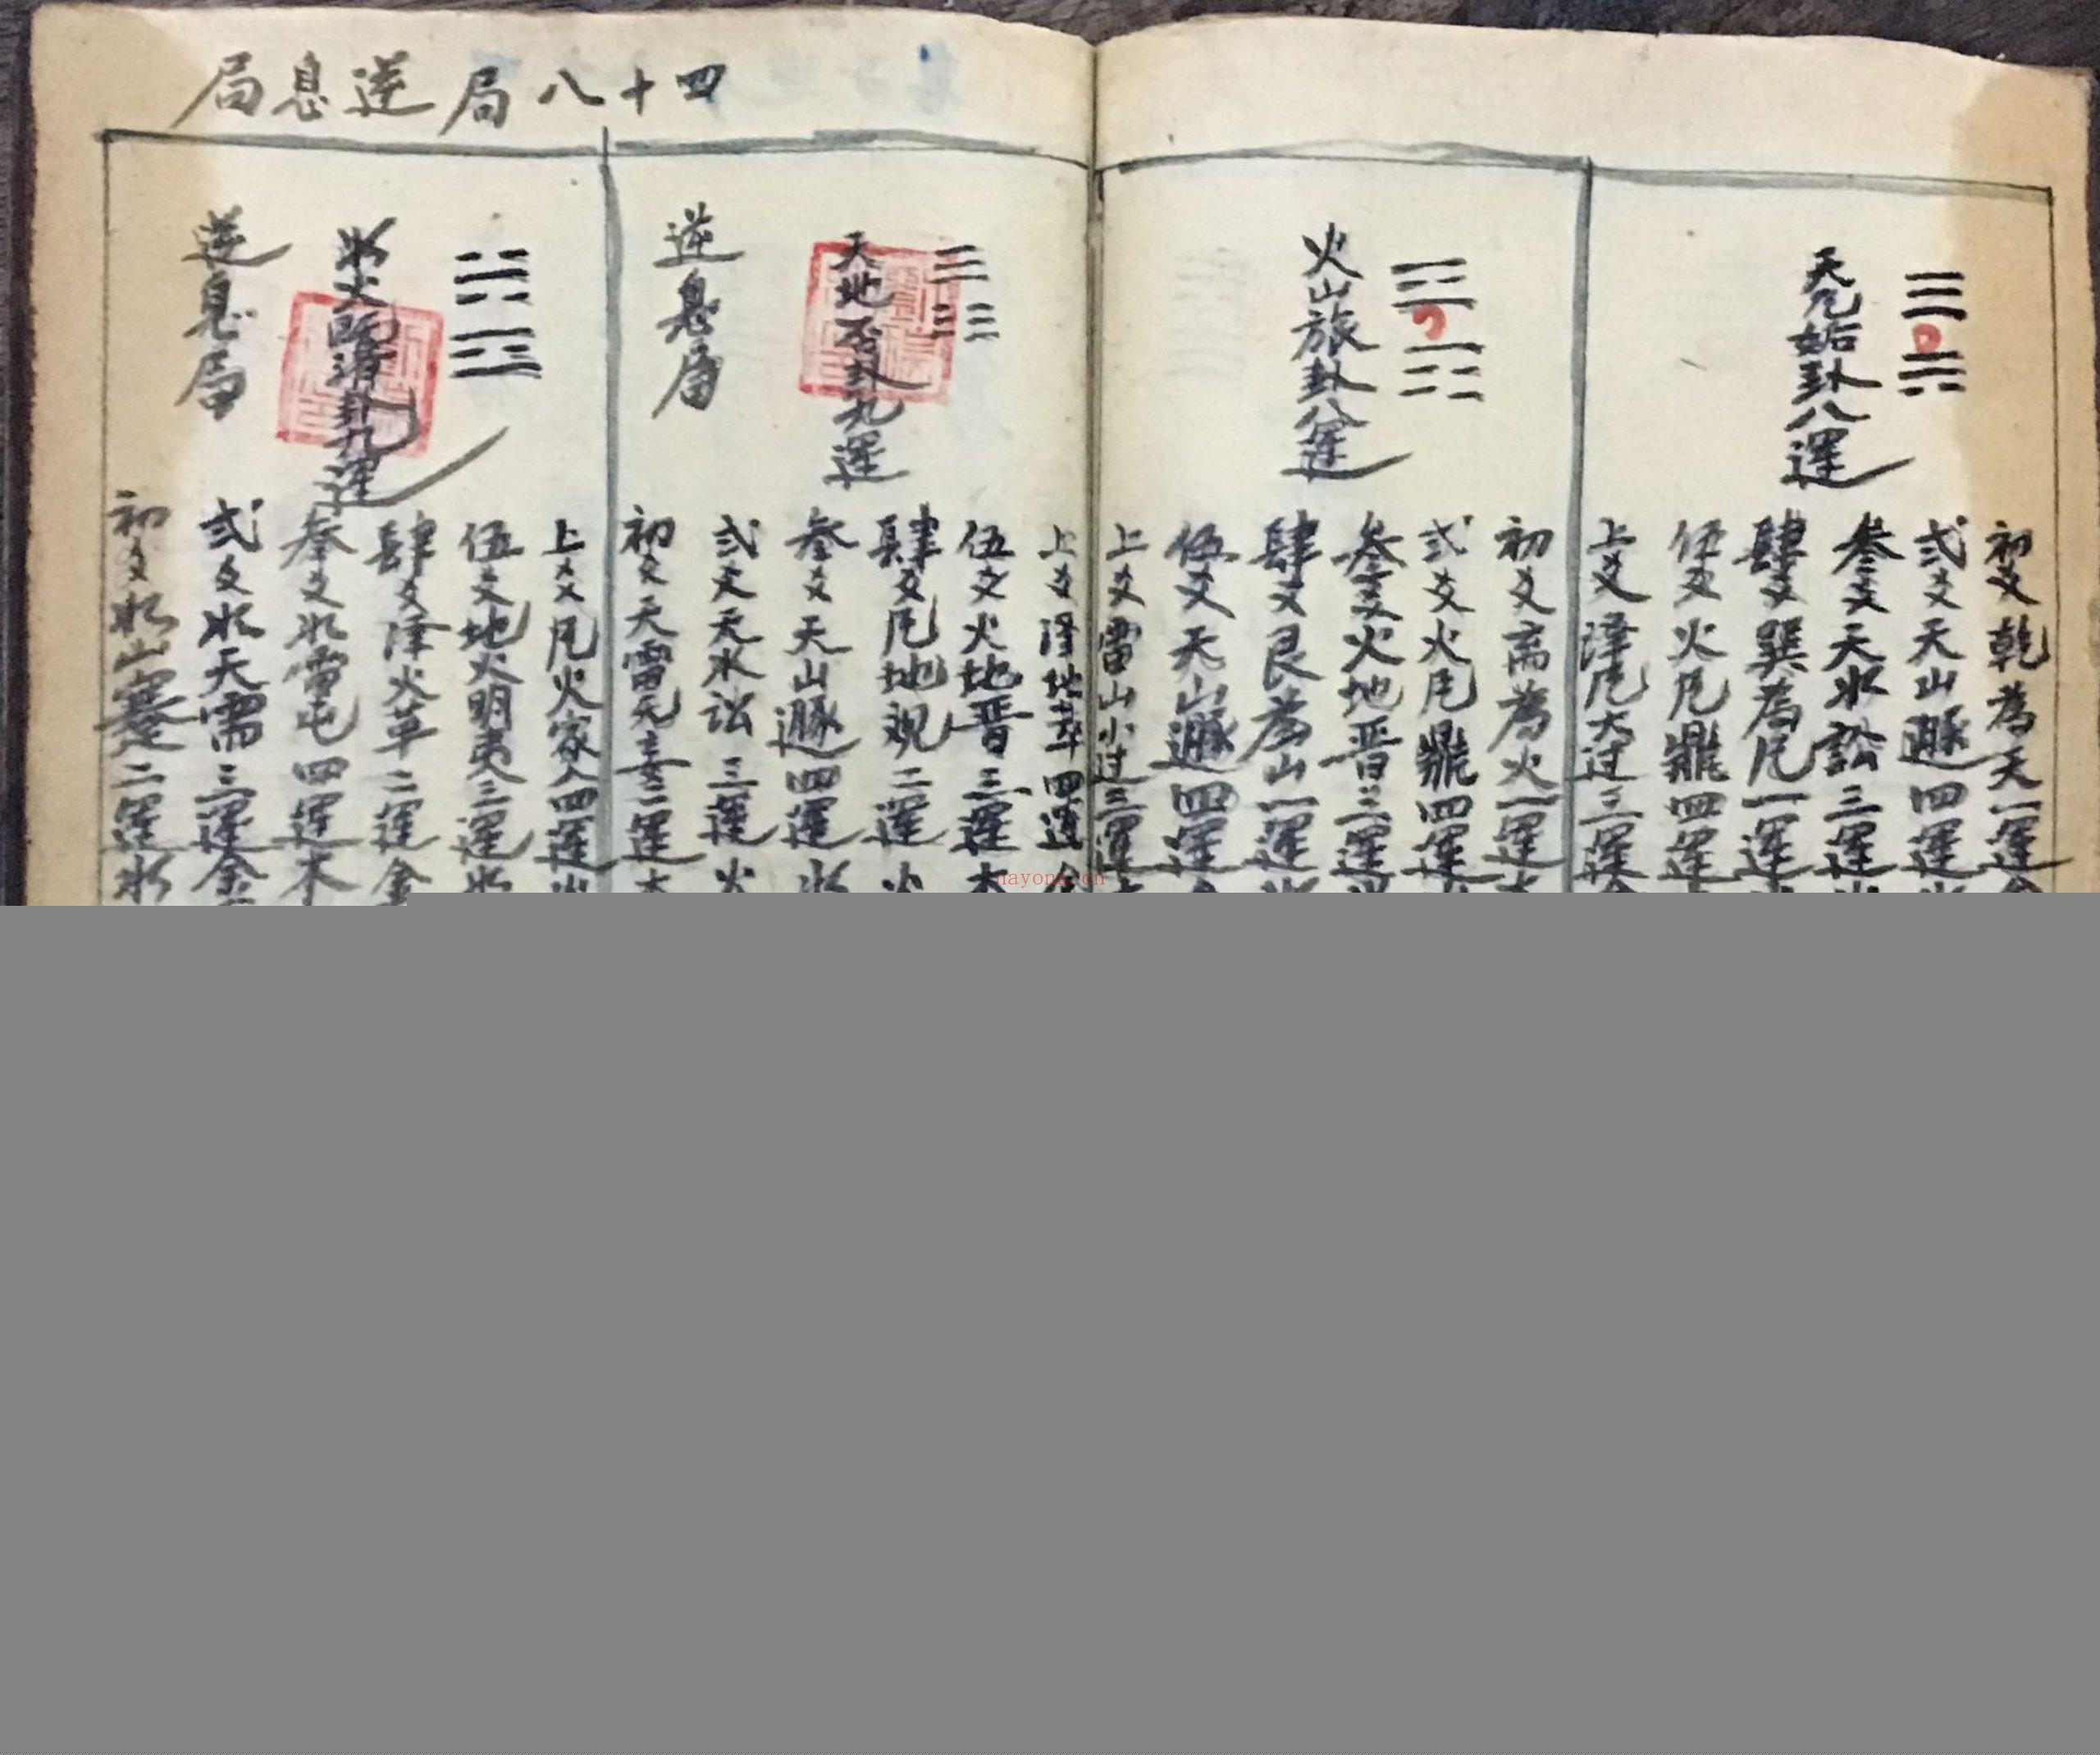 四十八局逆息局
天凢姤卦八運
初爻乾為天一運
弍爻天山遯四運
叁爻天水訟三運
肆爻巽為凢一運
伍爻火凢鼎四運
上爻澤凢大过三運
火山旅卦八運
初爻离為火一運
弍爻火凢鼎四運
叁爻火地晋三運
肆爻艮為山一運
伍爻天山遯四運
上爻雷山小过三運
天地否卦九運
逆息局
上爻澤地萃四運
伍爻火地晋三運木
肆爻凢地观二運火
叁爻天山遯四運水
弍爻天水訟三運火
初爻天雷无妄二運木
水火既濟卦九運
逆息局
上爻凢火家人四運
伍爻地火明夷三運水
肆爻澤火革二運金
叁爻水雷屯四運木
弍爻水天需三運金
初爻水山蹇二運水
nayona.cn